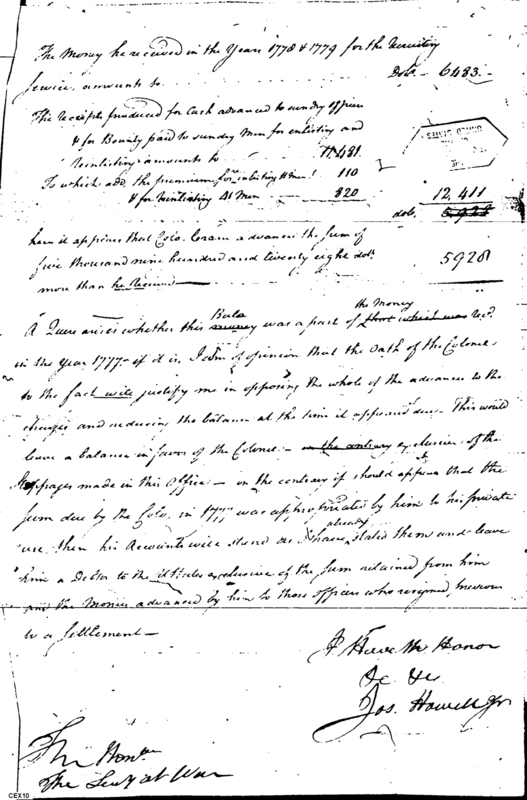 The Money he received in the Years 1778 & 1779 for the Recruiting
Service amounts to Dols. 6483.
The receipts produced for Cash advanced to sundry officers
& for Bounty paid to sundry Men for enlisting and
reinlisting amounts to 11,481
To which add the premium for inlisting 11 men 110
& for reinlisting 41 Men 820 12,411
dols. 5,928
here it appears that Colo. advanced the sum of
five thousand nine hundred and twenty eight dolls 5928
more than he Received
A Quere arises whether this money Bala was a part of that which was the Money recd.
in the Year 1777 - if it is, I am of opinion that the Oath of the Colonel
to the fact will justify me in opposing the whole of the advances to the
charges and reducing the balance at the time it appeared due - This would
leave a balance in favor of the Colonel - on the contrary exclusive of the
Stoppages made in this Office - on the contrary if should appear that the
sum due by the Colo. in 1777 was appropriated by him to his private
use then his Accounts will stand as I have already stated them and leave
him a Debtor to the U States exclusive of the sum retained from him
and the Monies advanced by him to those officers who resigned previous
to a settlement -
I Have the Honor
&c &c
Jos. Howell Jr
The Honble
The Secy at War
UNITED STATES
CEX10